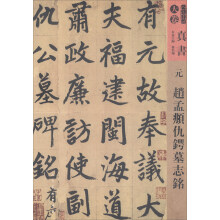 真書
元 趙孟頫仇鍔墓志銘
有元故奉議大
夫福建閩海道
肅政廉訪副使
仇公墓碑銘有